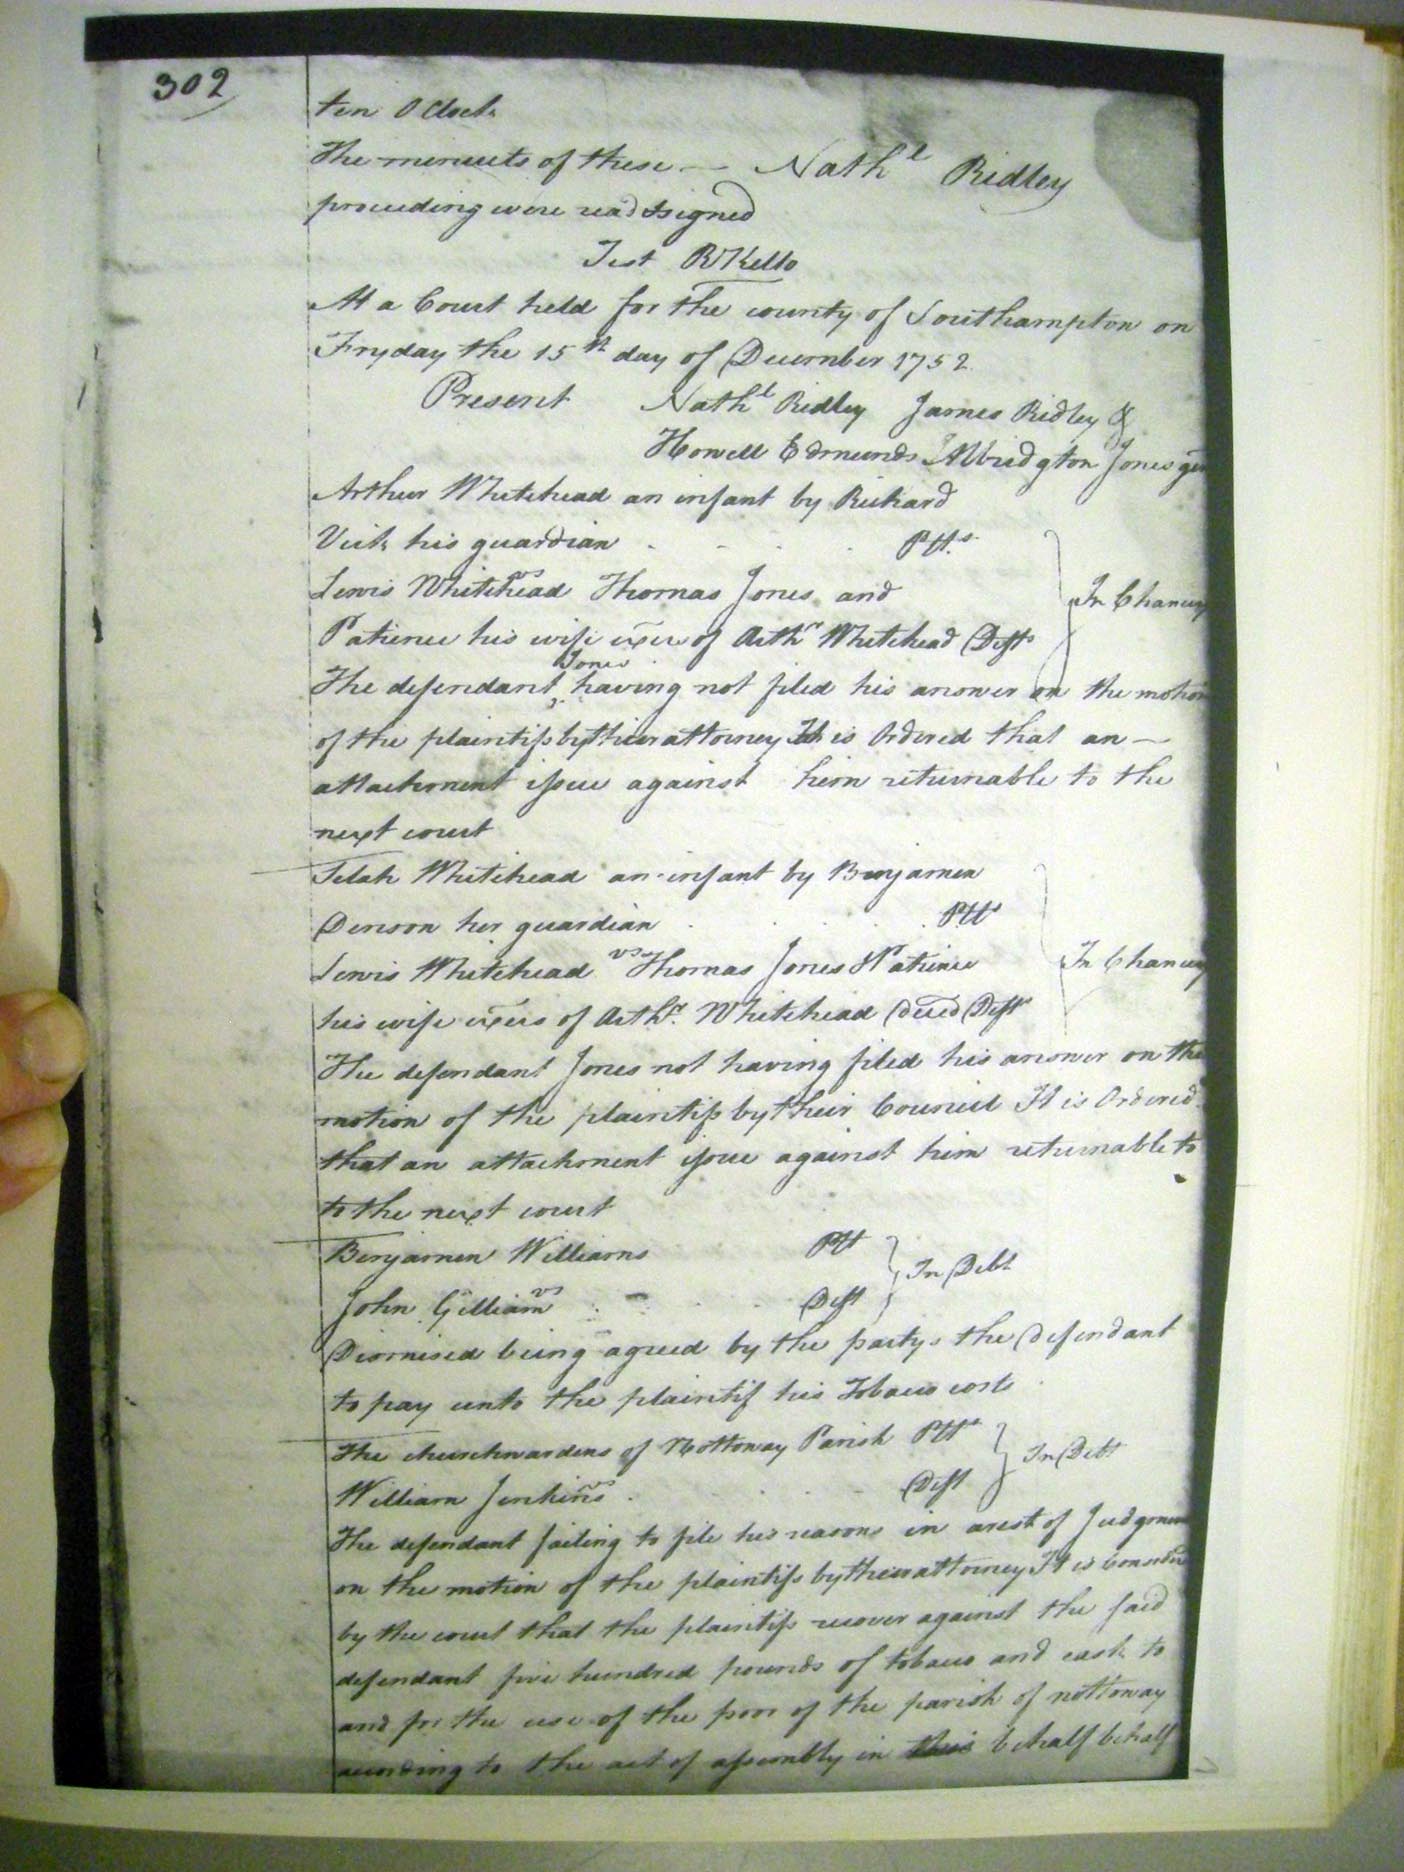 302
ten OClock
The minuets of these — Nathl Ridley
proceeding were read & signed
Test R Kello
At a Court held for the county of Southampton on
Fryday the 15th day of December 1752
Present Nathl Ridley James Ridley &
Howell Edmunds & Albridgton Jones gen
Arthur Whitehead an infant by Richard
Vick his guardian Plts
vs
Lewis Whitehead Thomas Jones and In Chancery
Patience his wife exers of Arthr Whitehead Defts
The defendant Jones having not filed his answer on the motion
of the plaintifs by their attorney It is Ordered that an —
attachment issue against him returnable to the
next court
Selah Whitehead an infant by Benjamen
Denson her guardian Plts
Lewis Whitehead vs Thomas Jones & Patience In Chancery
his wife exers of Arthr. Whitehead decd Defts
The defendant Jones not having filed his answer on the
motion of the plaintifs by their Council It is Ordered
that an attachment issue against him returnable to
to the next court
Benjamen Williams Plt
vs In Debt
John Gilliam Deft
Dismised being agreed by the partys the defendant
to pay unto the plaintif his Tobacco costs
The churchwardens of Nottoway Parish Plts
vs In Debt
William Jenkins Deft
The defendant failing to file his reasons in arest of Judgmen
on the motion of the plaintifs by their attorney It is Consider
by the court that the plaintifs recover against the said
defendant five hundred pounds of tobacco and cask to
and for the use of the poor of the parish of nottoway
according to the act of assembly in this behalf behalf